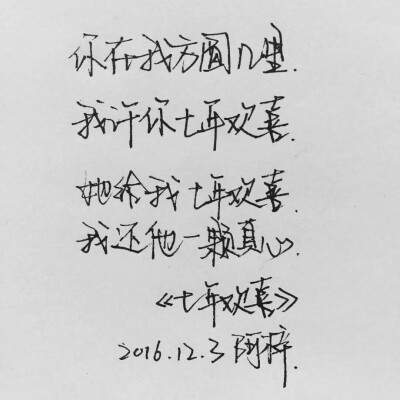 你在我方圆几里.
我许你七年欢喜.
她给我七年欢喜.
我还他一颗真心.
《七年欢喜》
2016.12.3 阿梓.